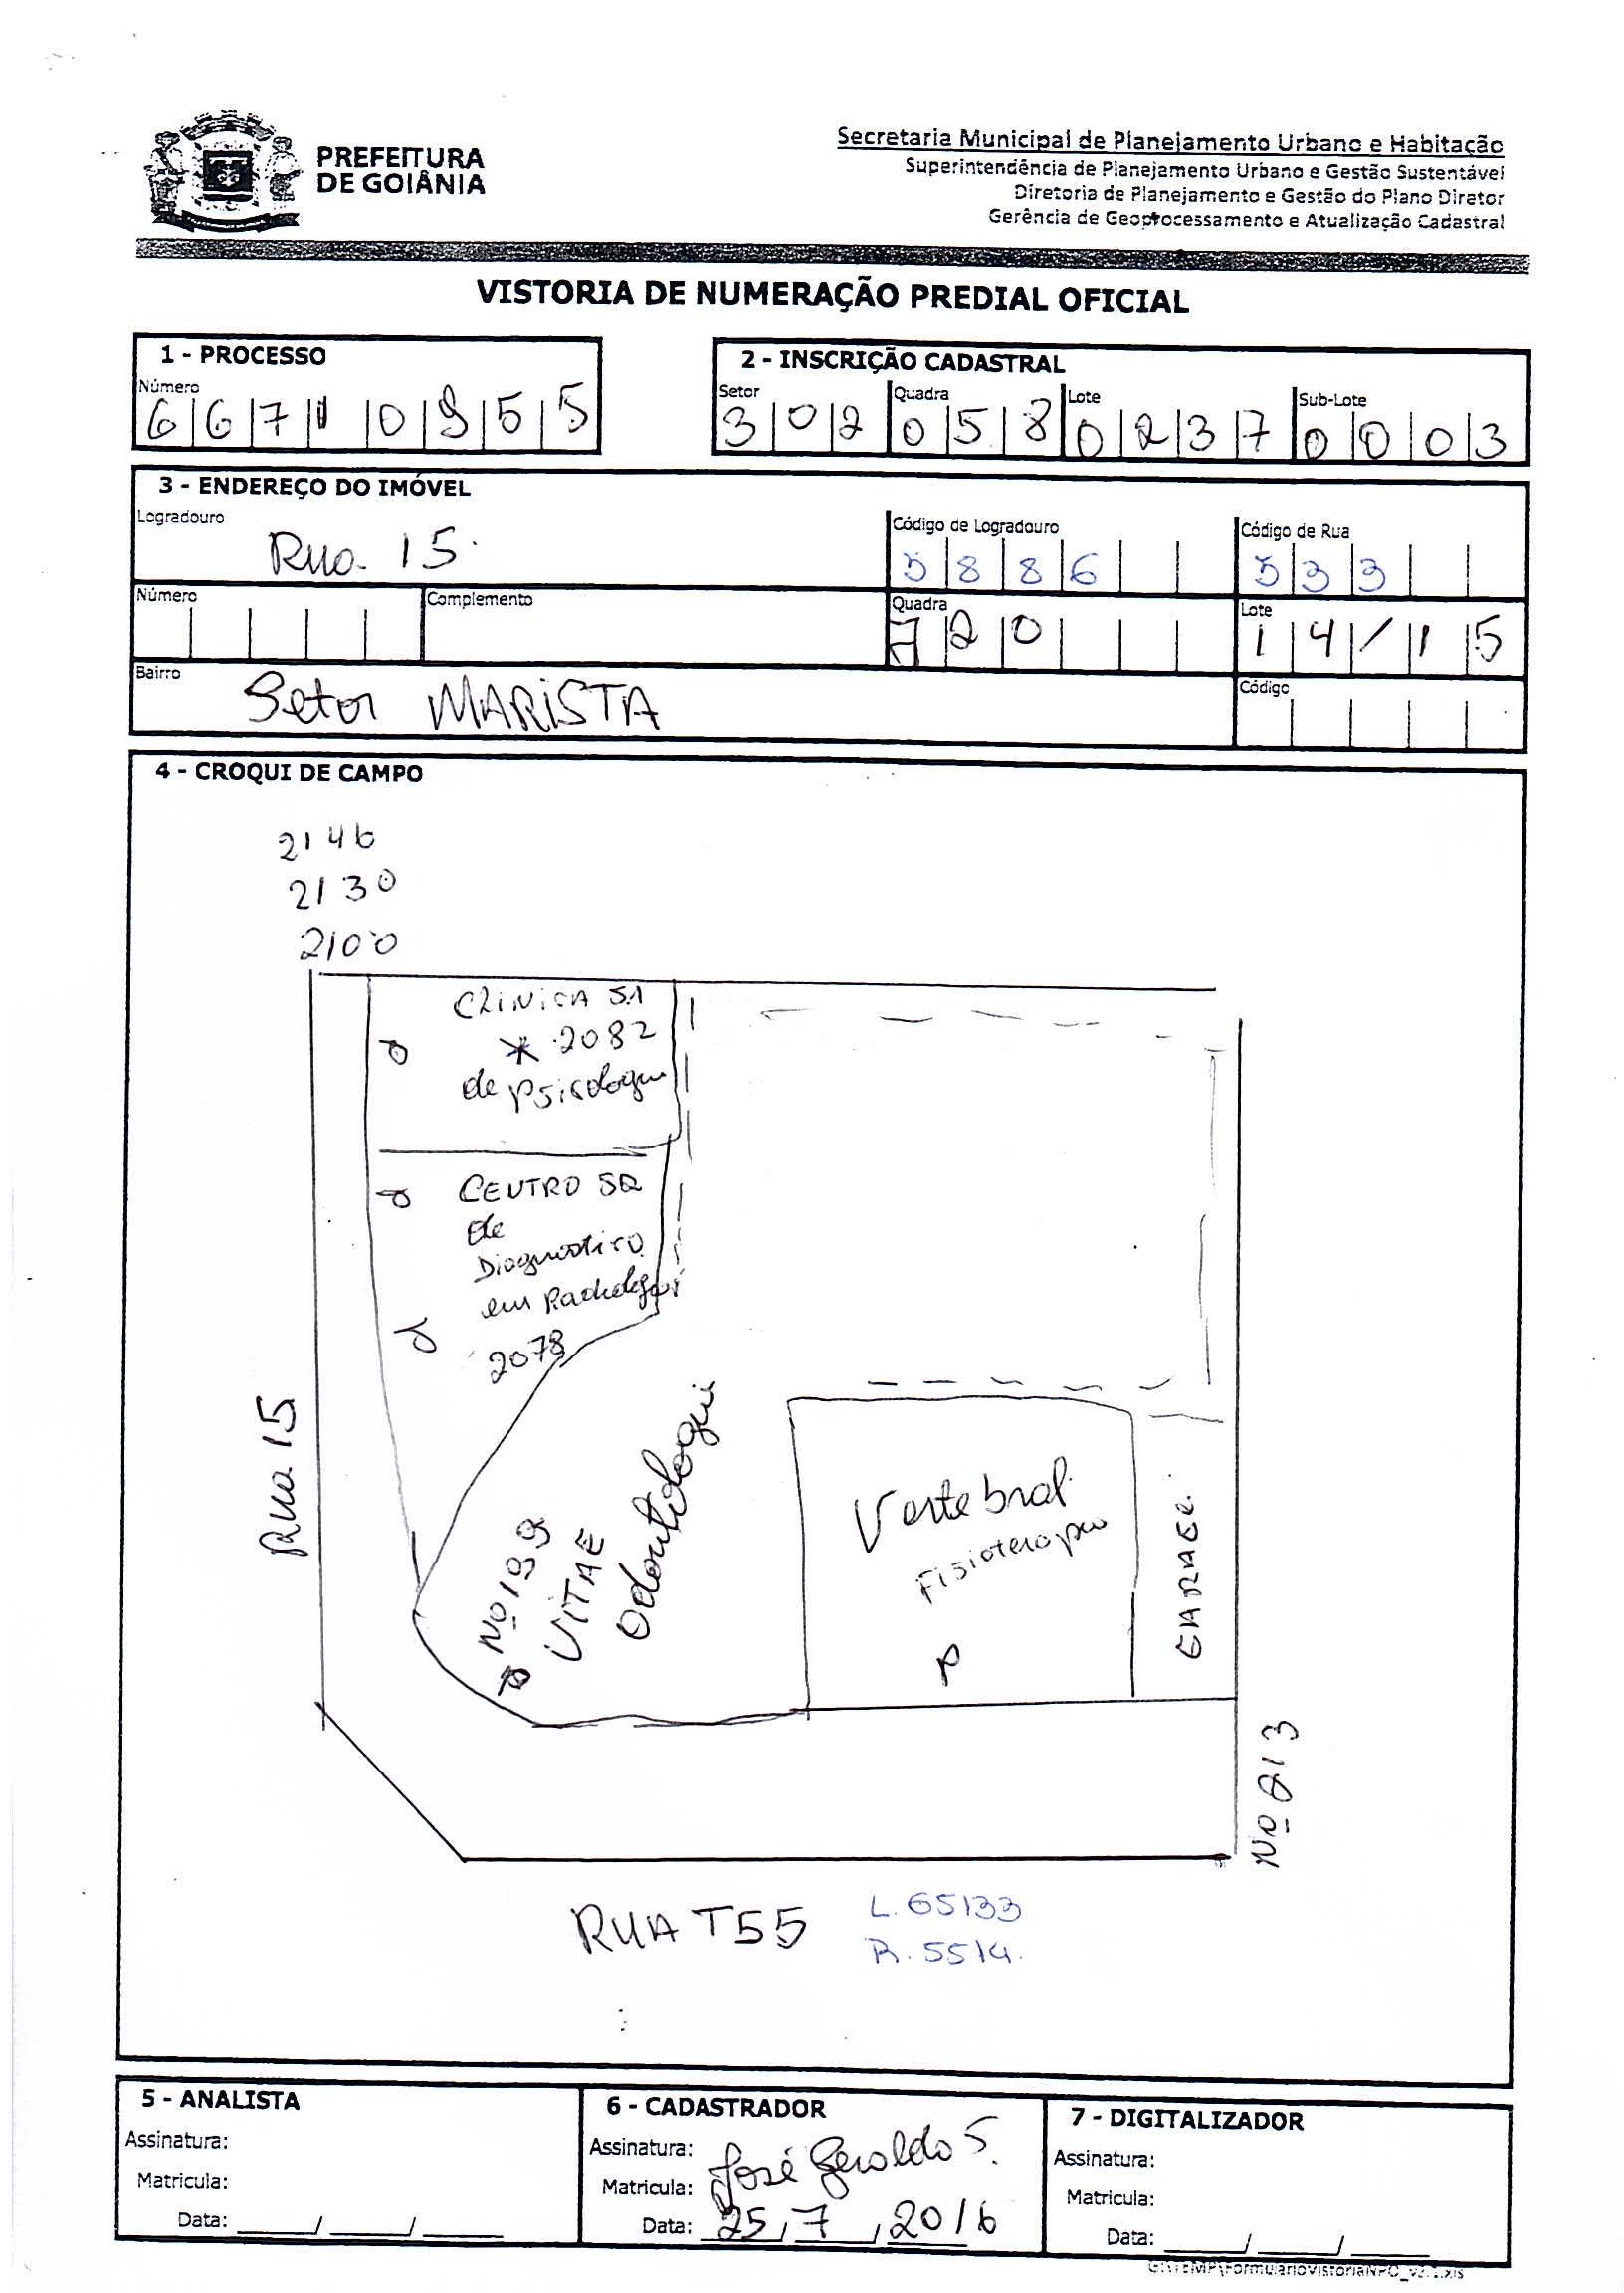 PREFEITURA
DE GOIÂNIA
Secretaria Municipal de Planejamento Urbano e Habitação
Superintendência de Planejamento Urbano e Gestão Sustentável
Diretoria de Planejamento e Gestão do Plano Diretor
Gerência de Geoprocessamento e Atualização Cadastral
VISTORIA DE NUMERAÇÃO PREDIAL OFICIAL
1 - PROCESSO
Número
6 6 7 1 0 9 5 5
2 - INSCRIÇÃO CADASTRAL
Setor Quadra Lote Sub-Lote
3 0 2 0 5 8 0 2 3 7 0 0 0 3
3 - ENDEREÇO DO IMÓVEL
Logradouro
Rua 15
Código de Logradouro
5 8 8 6
Código de Rua
5 3 3
Número
Complemento
Quadra
J 2 0
Lote
1 4 / 1 5
Bairro
Setor MARISTA
Código
4 - CROQUI DE CAMPO
2146
2130
2100
CLINICA S.1
* 2082
de Psicologia
CENTRO SQ
de
Diagnostico
em Radiologia
2078
Rua 15
Nº 199
VITAE
Odontologia
Vertebral
Fisioterapia
GARAGE
Nº 213
RUA T55
L. 65133
R. 5514.
5 - ANALISTA
Assinatura:
Matricula:
Data: ____/____/____
6 - CADASTRADOR
Assinatura: José Geraldo S.
Matricula:
Data: 25/7/2016
7 - DIGITALIZADOR
Assinatura:
Matricula:
Data: ____/____/____
G:\TEMP\FormularioVistoriaNPO_v3.1.xls